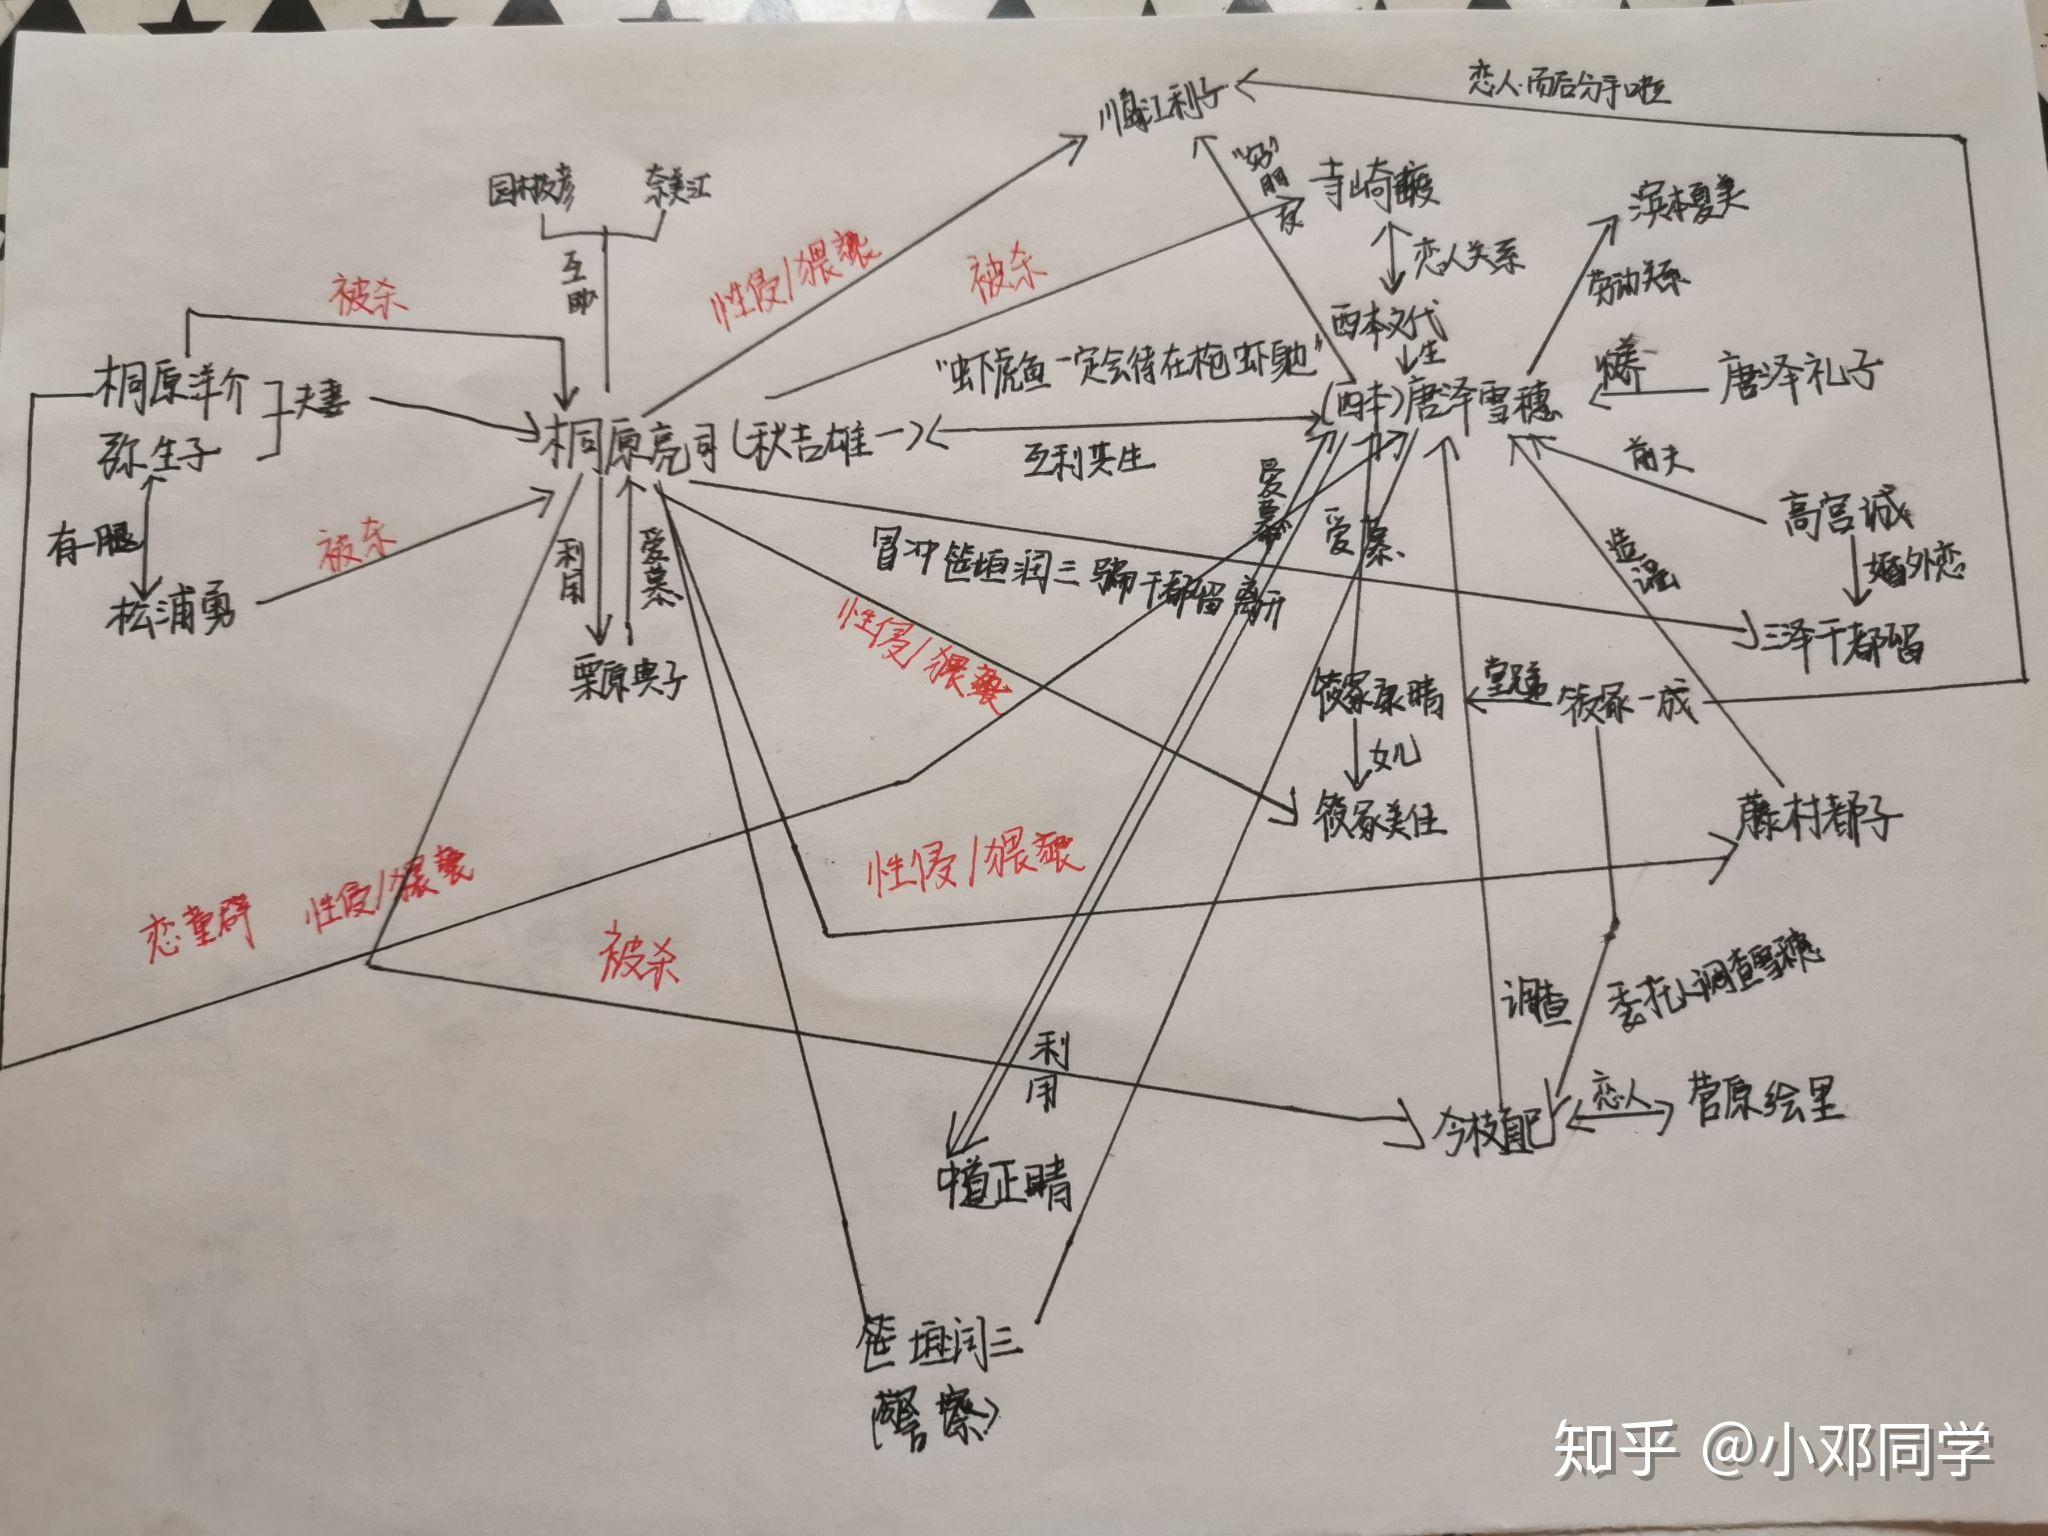 恋人.而后分手啦
川島江利子
"好"朋友
寺崎
园村友彦
奈美江
滨本夏美
互助
性侵/猥亵
被杀
恋人关系
劳动关系
被杀
西本文代
生
桐原洋介
夫妻
弥生子
"虾虎鱼一定会待在枪虾身边"
唐泽礼子
(西本)唐泽雪穗
桐原亮司(秋吉雄一)
互利共生
前夫
高宫诚
有一腿
被杀
利用
爱慕
爱慕
爱慕
冒冲笹垣润三骗千都留离开
造谣
婚外恋
松浦勇
性侵/猥亵
三泽千都留
栗原典子
筱冢康晴
堂兄弟
筱冢一成
女儿
筱冢美佳
藤村都子
恋童癖
性侵/猥亵
性侵/猥亵
被杀
调查
委托人调查雪穗
利用
今枝直巳
恋人
菅原绘里
中道正晴
笹垣润三
(警察)
知乎 @小邓同学